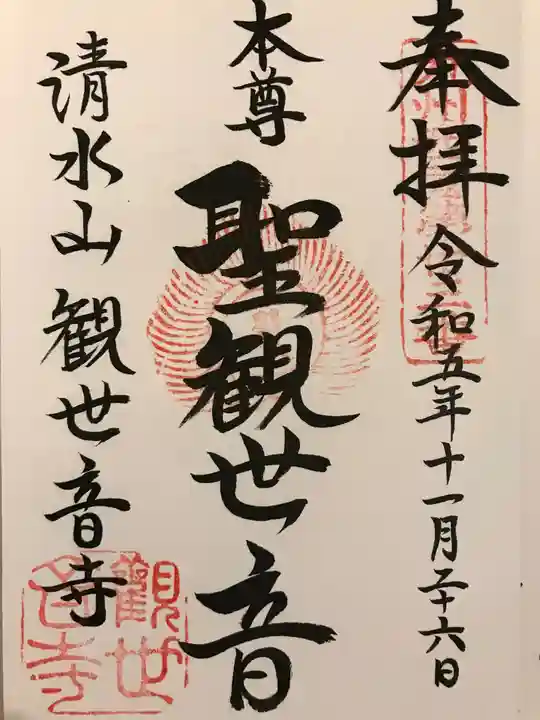 奉拝 令和五年十一月二十六日
本尊
聖観世音
清水山 観世音寺
観世
音寺